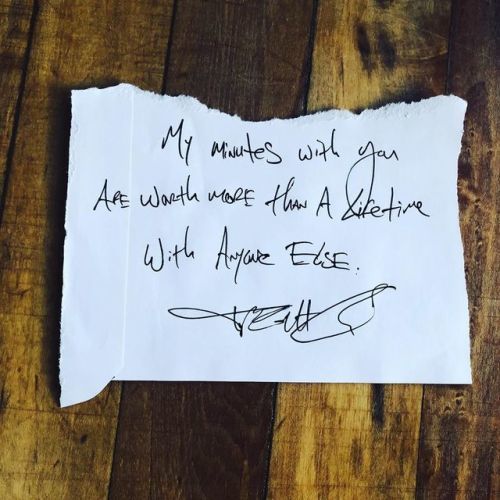 My minutes with you
Are worth more than A Lifetime
With Anyone Else.